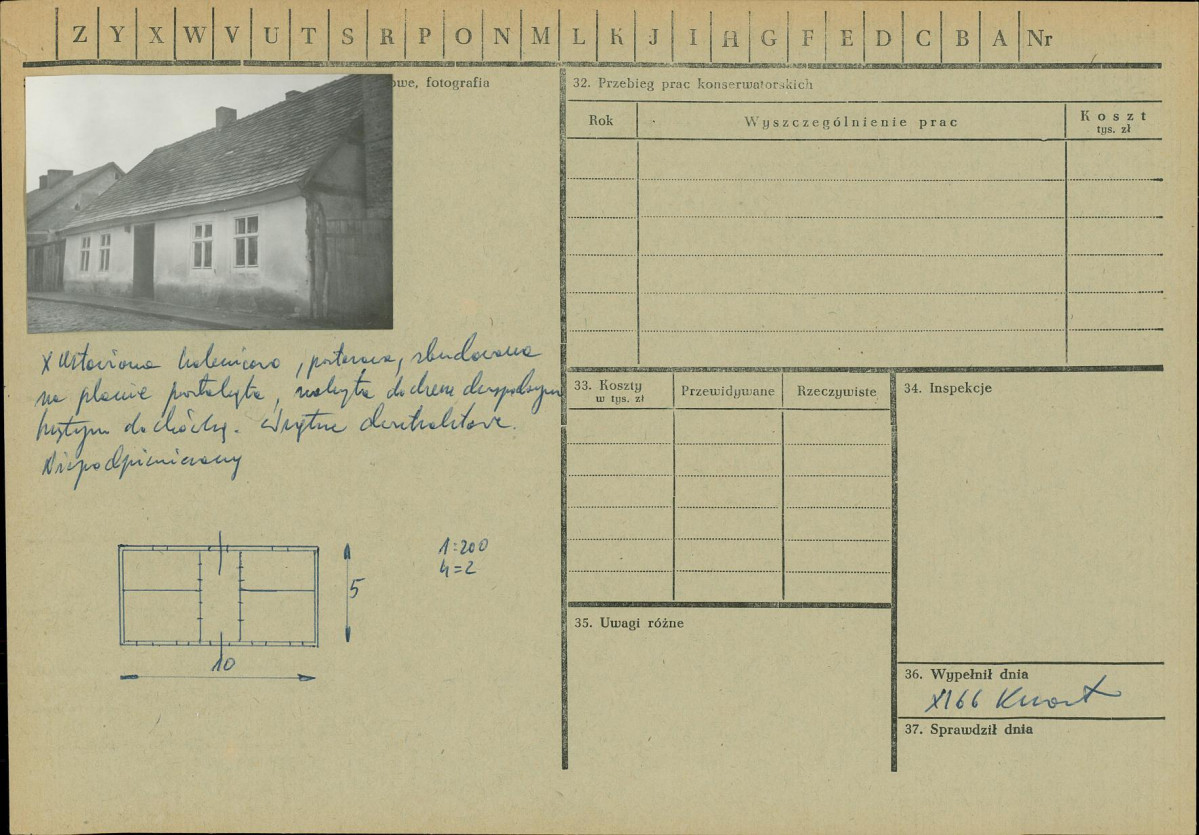 Z Y X W V U T S R P O N M L K J I H G F E D C B A Nr
owe, fotografia
X Ustawiona kalenicowo, parterowa, zbudowana
na planie prostokąta, nakryta dachem dwuspadowym
krytym dachówką. Wnętrze dwutraktowe.
Niepodpiwniczony
1:200
4=2
5
10
32. Przebieg prac konserwatorskich
Rok
Wyszczególnienie prac
Koszt
tys. zł
33. Koszty
w tys. zł
Przewidywane
Rzeczywiste
34. Inspekcje
35. Uwagi różne
36. Wypełnił dnia
XI 66
37. Sprawdził dnia